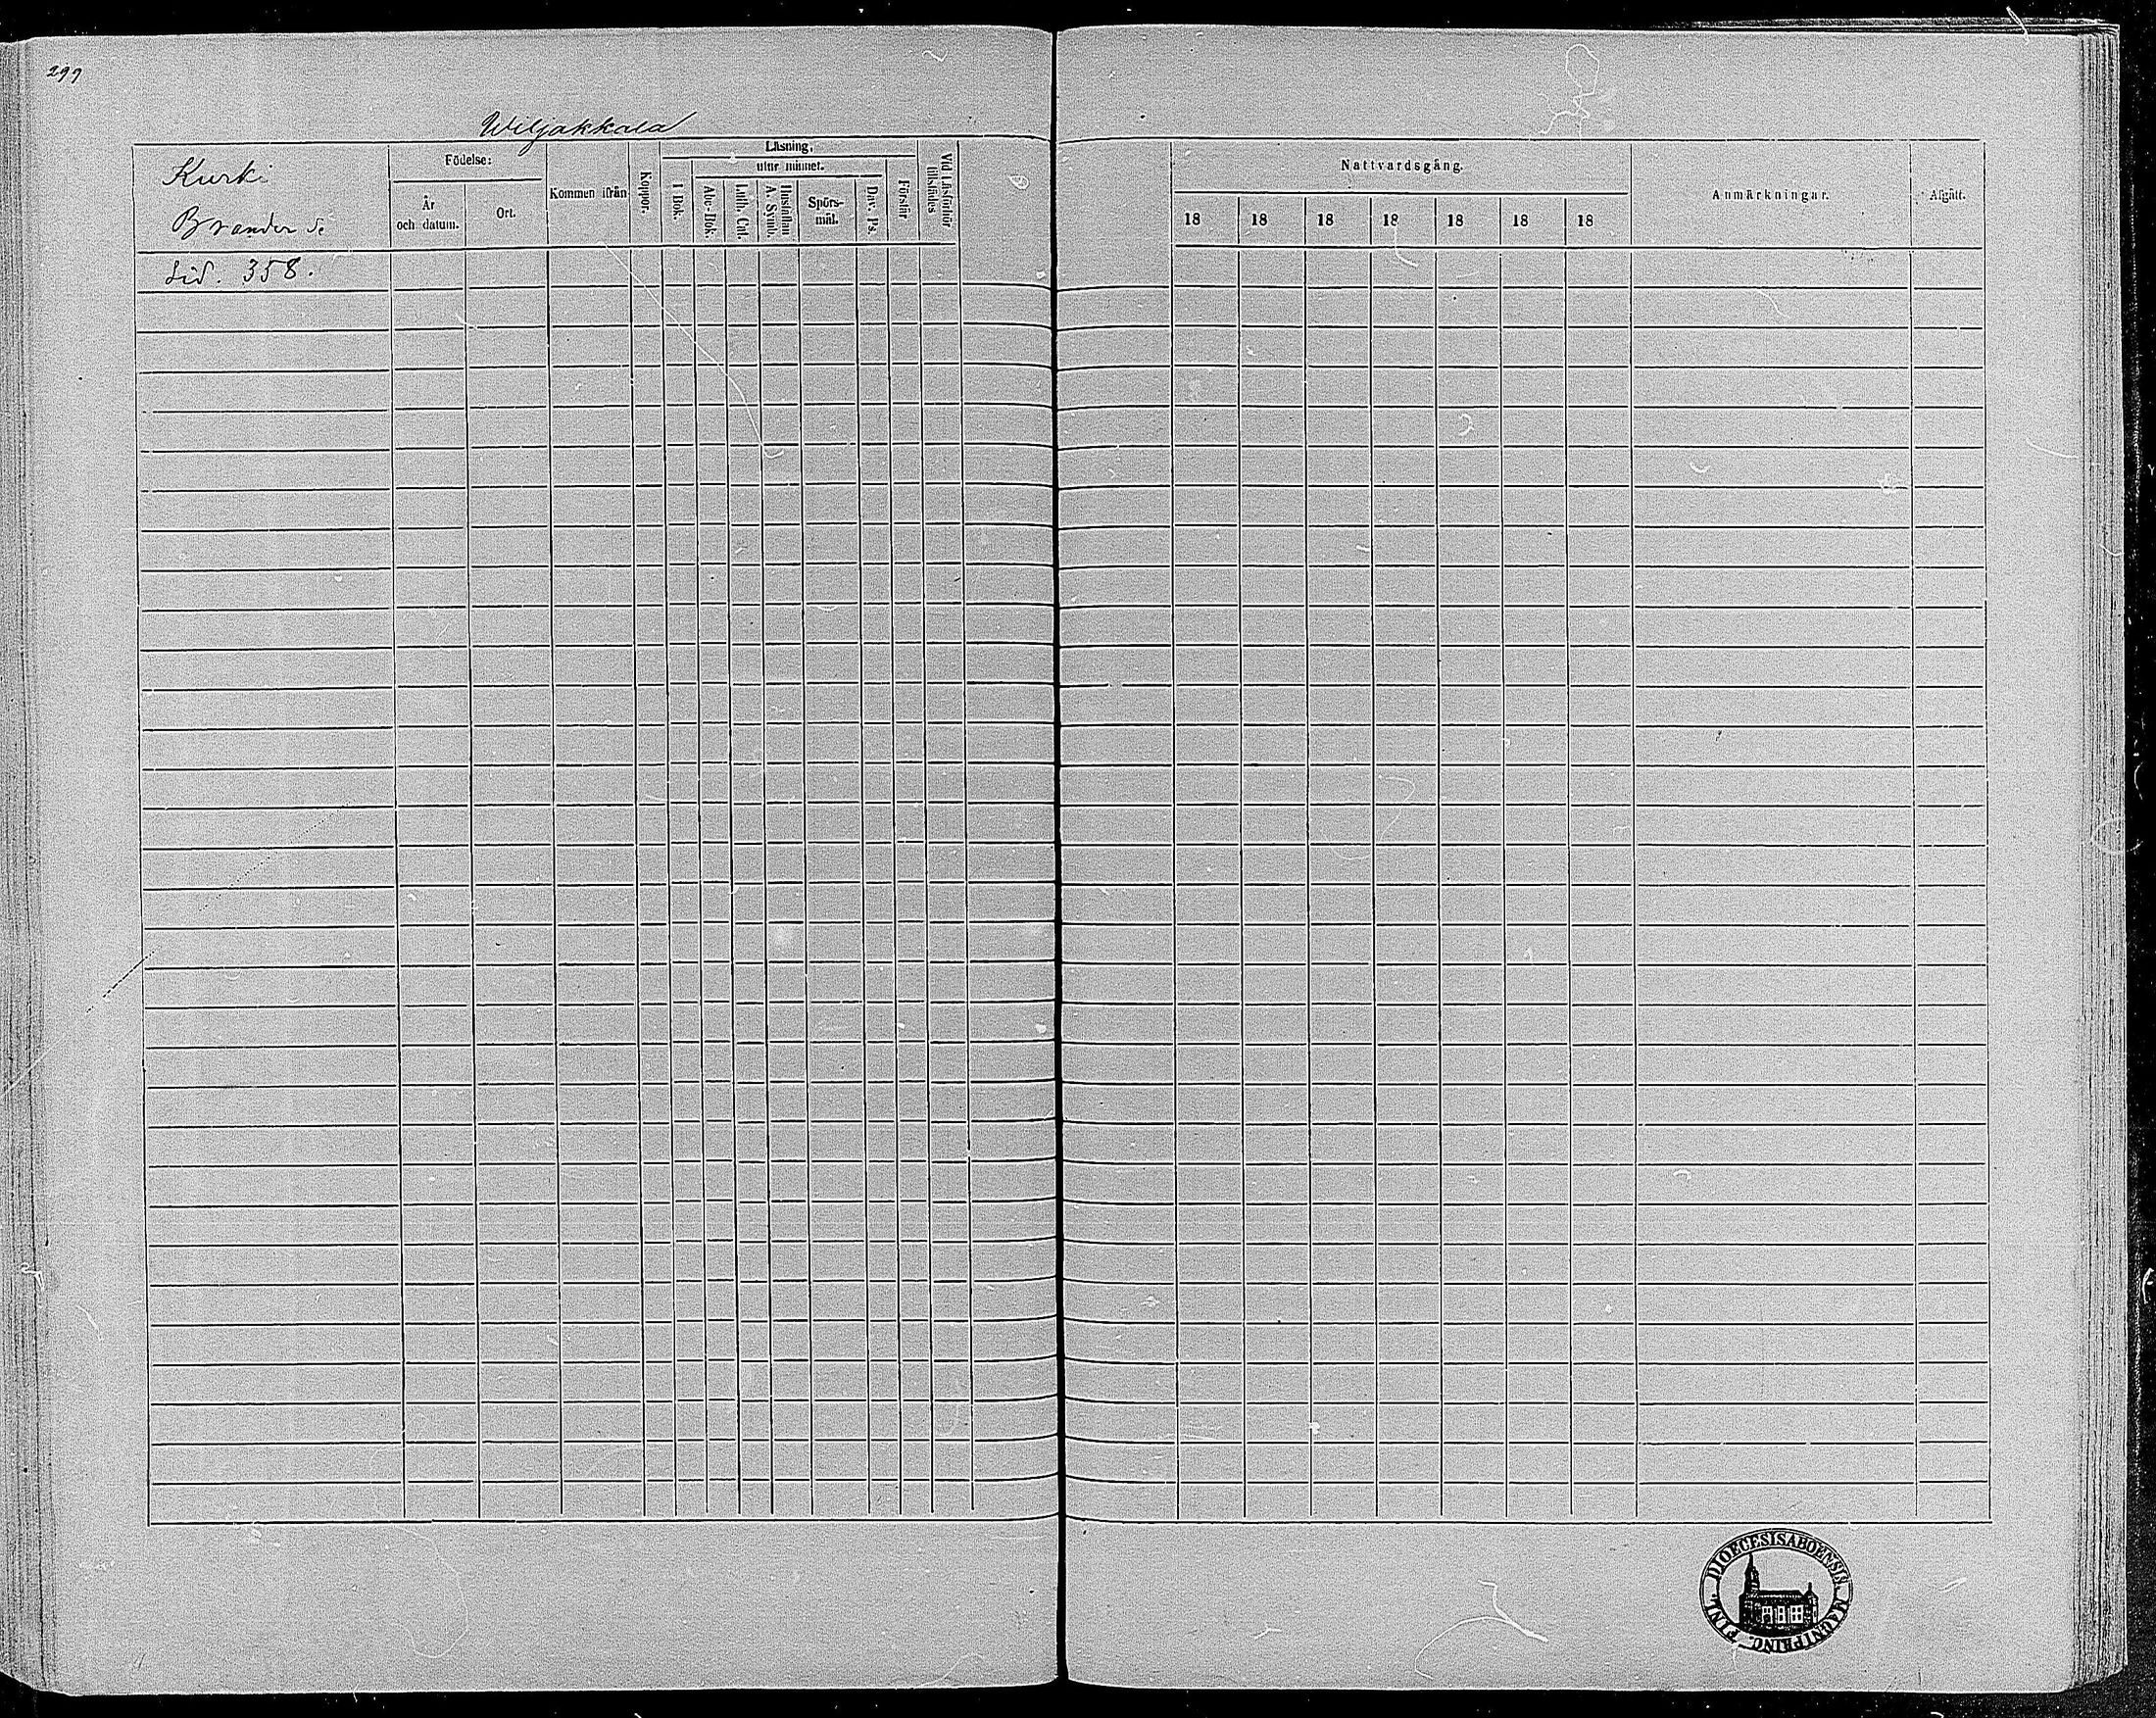 299
Wiljakkala
Kurki
Brander se
Sid. 358.
Födelse:
År
och datum.
Ort.
Kommen ifrån
Koppor.
Läsning,
utur minnet.
I Bok.
Abc-Bok.
Luth. Cat.
Hustaflan
A. Symb.
Spörs-
mål.
Dav. Ps.
Förstår
Vid Läsförhör
tillstädes
Nattvardsgång.
18 18 18 18 18 18 18
Anmärkningar.
Afgått.
DIOECESIS ABOENSIS MAGNI PRINC. FINL.